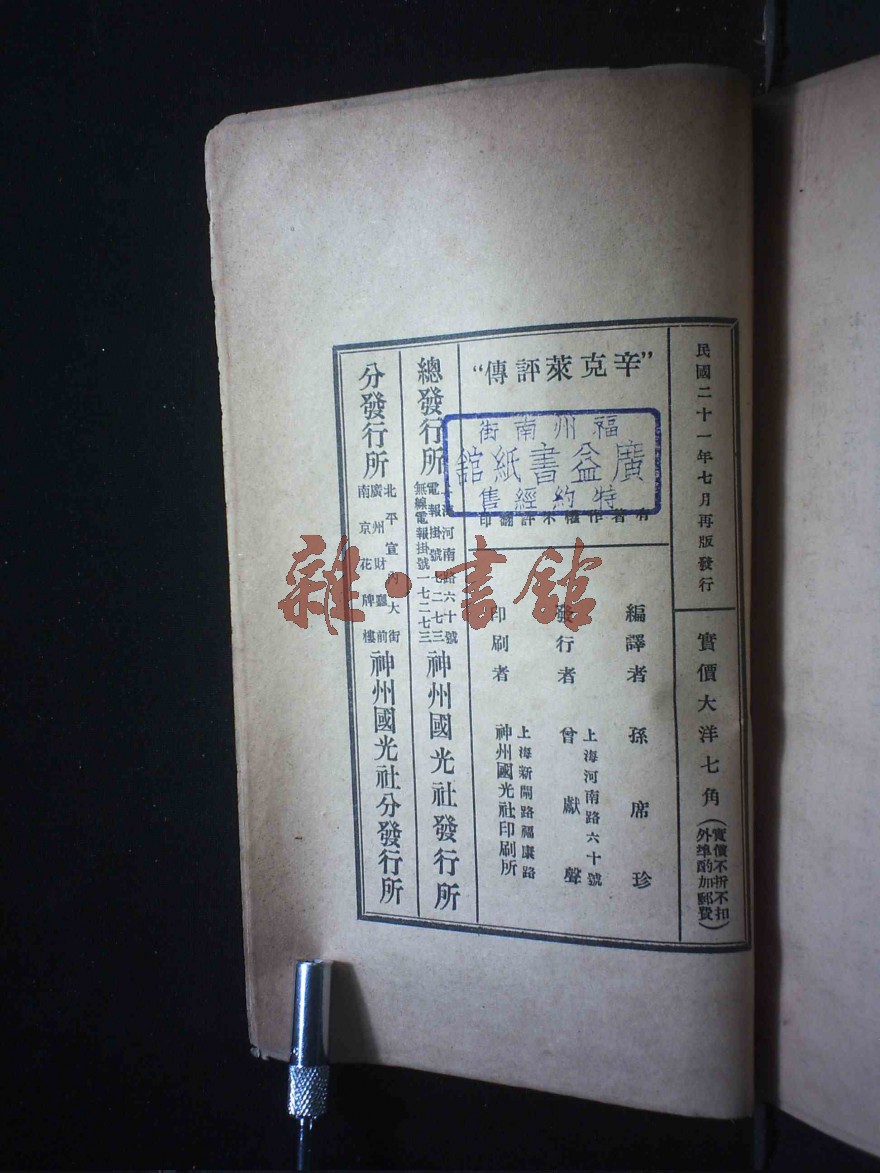 民國二十一年七月再版發行
實價大洋七角
(實價不折不扣
外埠酌加郵費)
“辛克萊評傳”
福州南街
廣益書紙舘
特約經售
有著作權不許翻印
編譯者 孫席珍
發行者 曾獻聲
上海河南路六十號
印刷者 神州國光社印刷所
上海新閘路福康路
總發行所
上海河南路六十號
電報掛號七二七三
無線電報掛號一七二七三
神州國光社發行所
分發行所
北平宣內大街
廣州財廳前
南京花牌樓
神州國光社分發行所
雜·書舘